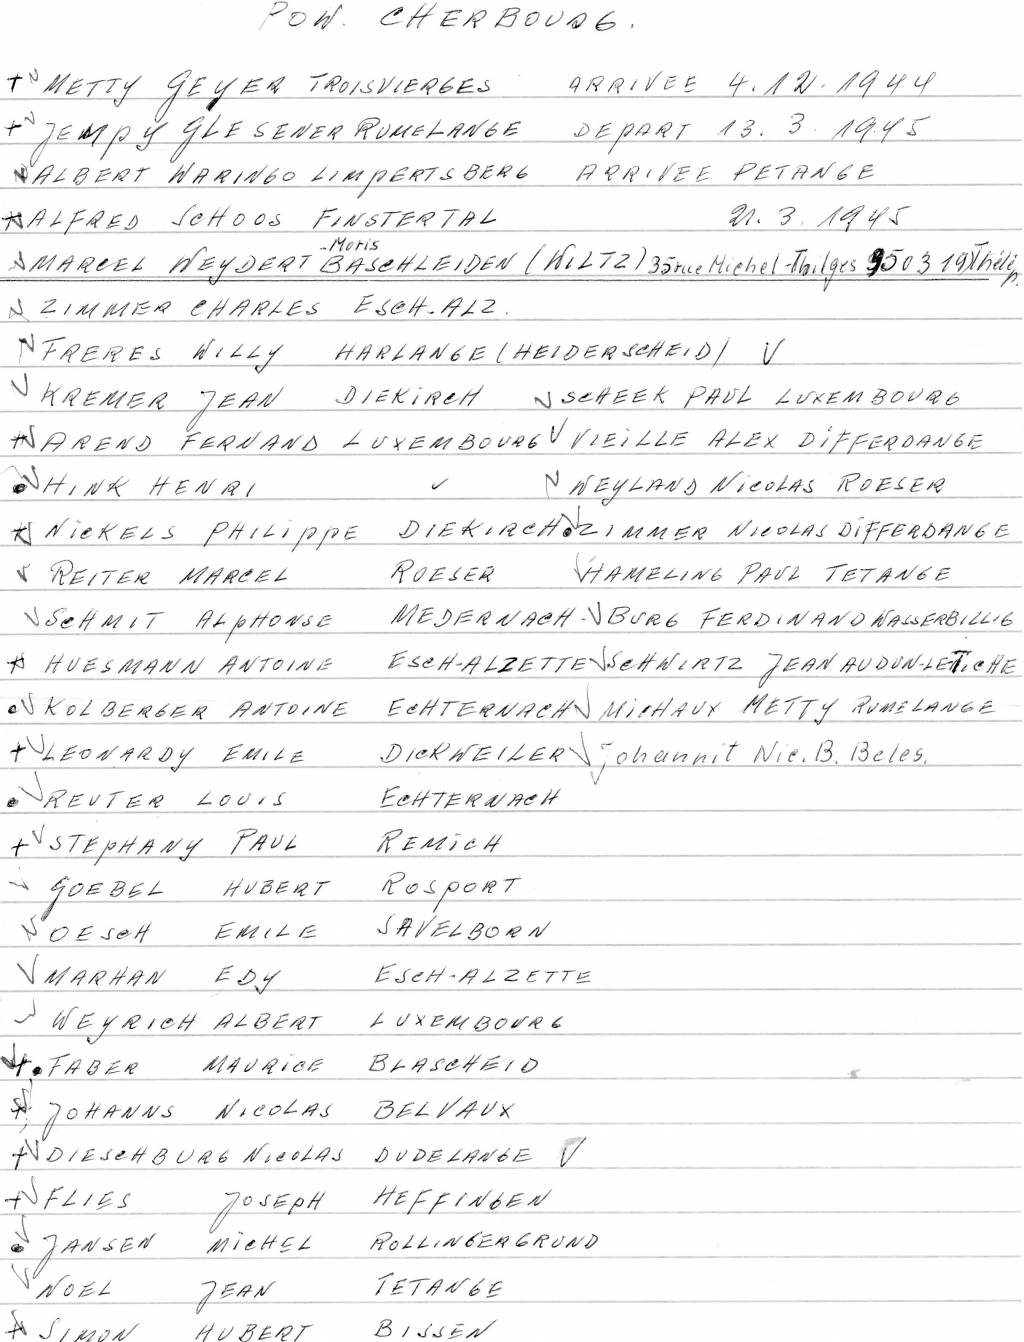 POW. CHERBOURG.
+ V METTY GEYER TROISVIERGES ARRIVEE 4.12.1944
+ V JEMPY GLESENER RUMELANGE DEPART 13.3.1945
V ALBERT WARINGO LIMPERTSBERG ARRIVEE PETANGE
+ ALFRED SCHOOS FINSTERTAL 21.3.1945
-Moris
V MARCEL WEYDERT BASCHLEIDEN (WILTZ) 35 rue Michel-Thilges 950319 Thélé p.
V ZIMMER CHARLES ESCH-ALZ.
V FRERES WILLY HARLANGE (HEIDERSCHEID) V
V KREMER JEAN DIEKIRCH V SCHEEK PAUL LUXEMBOURG
+ V AREND FERNAND LUXEMBOURG V VIEILLE ALEX DIFFERDANGE
• V HINK HENRI ✓ V WEYLAND NICOLAS ROESER
+ V NICKELS PHILIPPE DIEKIRCH • V ZIMMER NICOLAS DIFFERDANGE
V REITER MARCEL ROESER V HAMELING PAUL TETANGE
V SCHMIT ALPHONSE MEDERNACH - V BURG FERDINAND WASSERBILLIG
+ HUESMANN ANTOINE ESCH-ALZETTE V SCHWIRTZ JEAN AUDUN-LE-TICHE
• V KOLBERGER ANTOINE ECHTERNACH V MICHAUX METTY RUMELANGE
+ V LEONARDY EMILE DICKWEILER V Johannit Nic. B. Beles.
• V REUTER LOUIS ECHTERNACH
+ V STEPHANY PAUL REMICH
V GOEBEL HUBERT ROSPORT
V OESCH EMILE SAVELBORN
V MARHAN EDY ESCH-ALZETTE
V WEYRICH ALBERT LUXEMBOURG
+ • FABER MAURICE BLASCHEID
+ JOHANNS NICOLAS BELVAUX
+ V DIESCHBURG NICOLAS DUDELANGE V
+ V FLIES JOSEPH HEFFINGEN
• V JANSEN MICHEL ROLLINGERGRUND
V NOEL JEAN TETANGE
+ SIMON HUBERT BISSEN